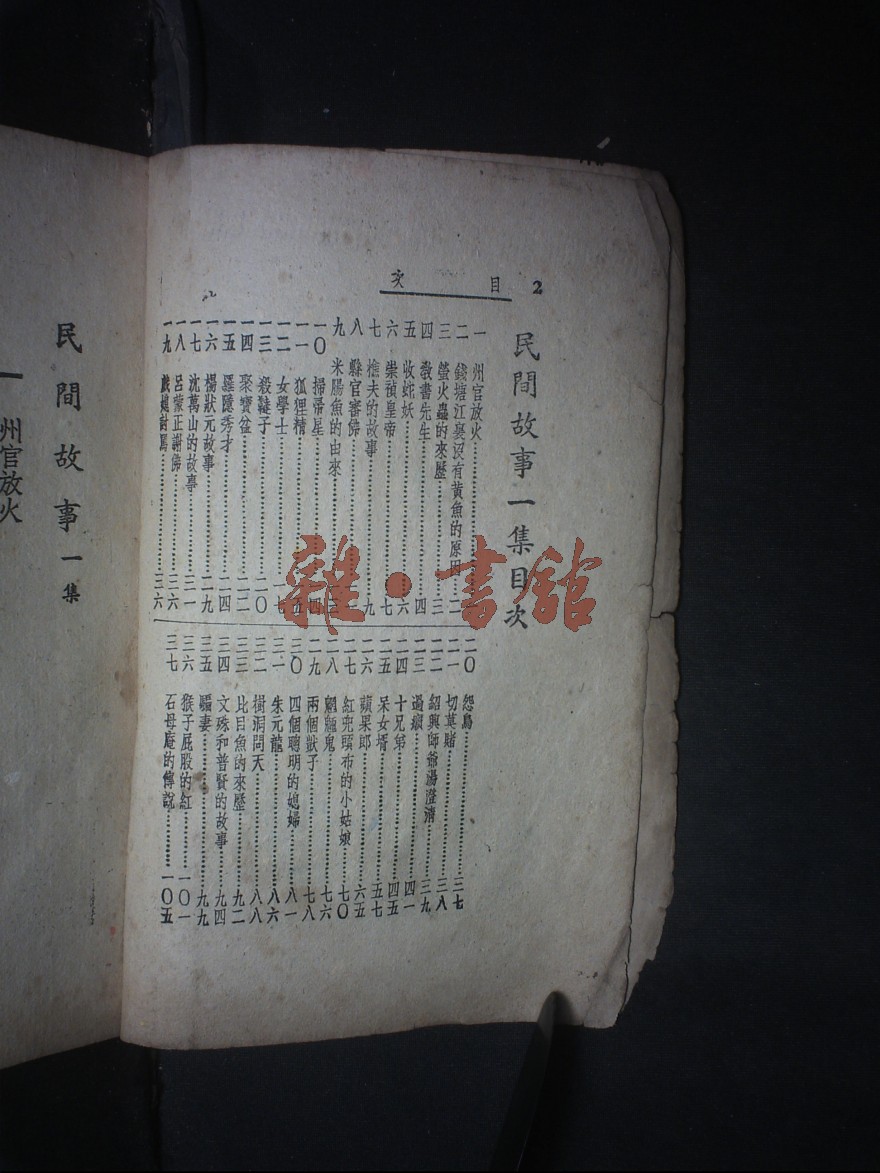 目次
2
民間故事一集目次
一 州官放火
二 錢塘江裏沒有黃魚的原因 二
三 螢火蟲的來歷 三
四 教書先生 四
五 收蛇妖 六
六 崇禎皇帝 七
七 樵夫的故事 九
八 縣官審佛
九 米腸魚的由來
一〇 掃帚星
一一 狐狸精
一二 女學士 一七
一三 殺韃子 二〇
一四 聚寶盆 二二
一五 羅隱秀才 二四
一六 楊狀元故事 二九
一七 沈萬山的故事 三一
一八 呂蒙正謝佛 三六
一九 三六
二〇 怨鳥 三七
二一 切莫賭 三八
二二 紹興師爺湯澄清 三九
二三 過癩 四一
二四 十兄弟 四五
二五 呆女壻 五七
二六 蘋果郎 六五
二七 紅兜曬布的小姑娘 七〇
二八 魍魎鬼 七六
二九 兩個獃子 七八
三〇 四個聰明的媳婦 八一
三一 朱元龍 八六
三二 樹洞問天 八八
三三 比目魚的來歷 九二
三四 文殊和普賢的故事 九四
三五 騙妻 九九
三六 猴子屁股的紅 一〇一
三七 石母庵的傳說 一〇五
民間故事一集
一 州官放火
雜·書館